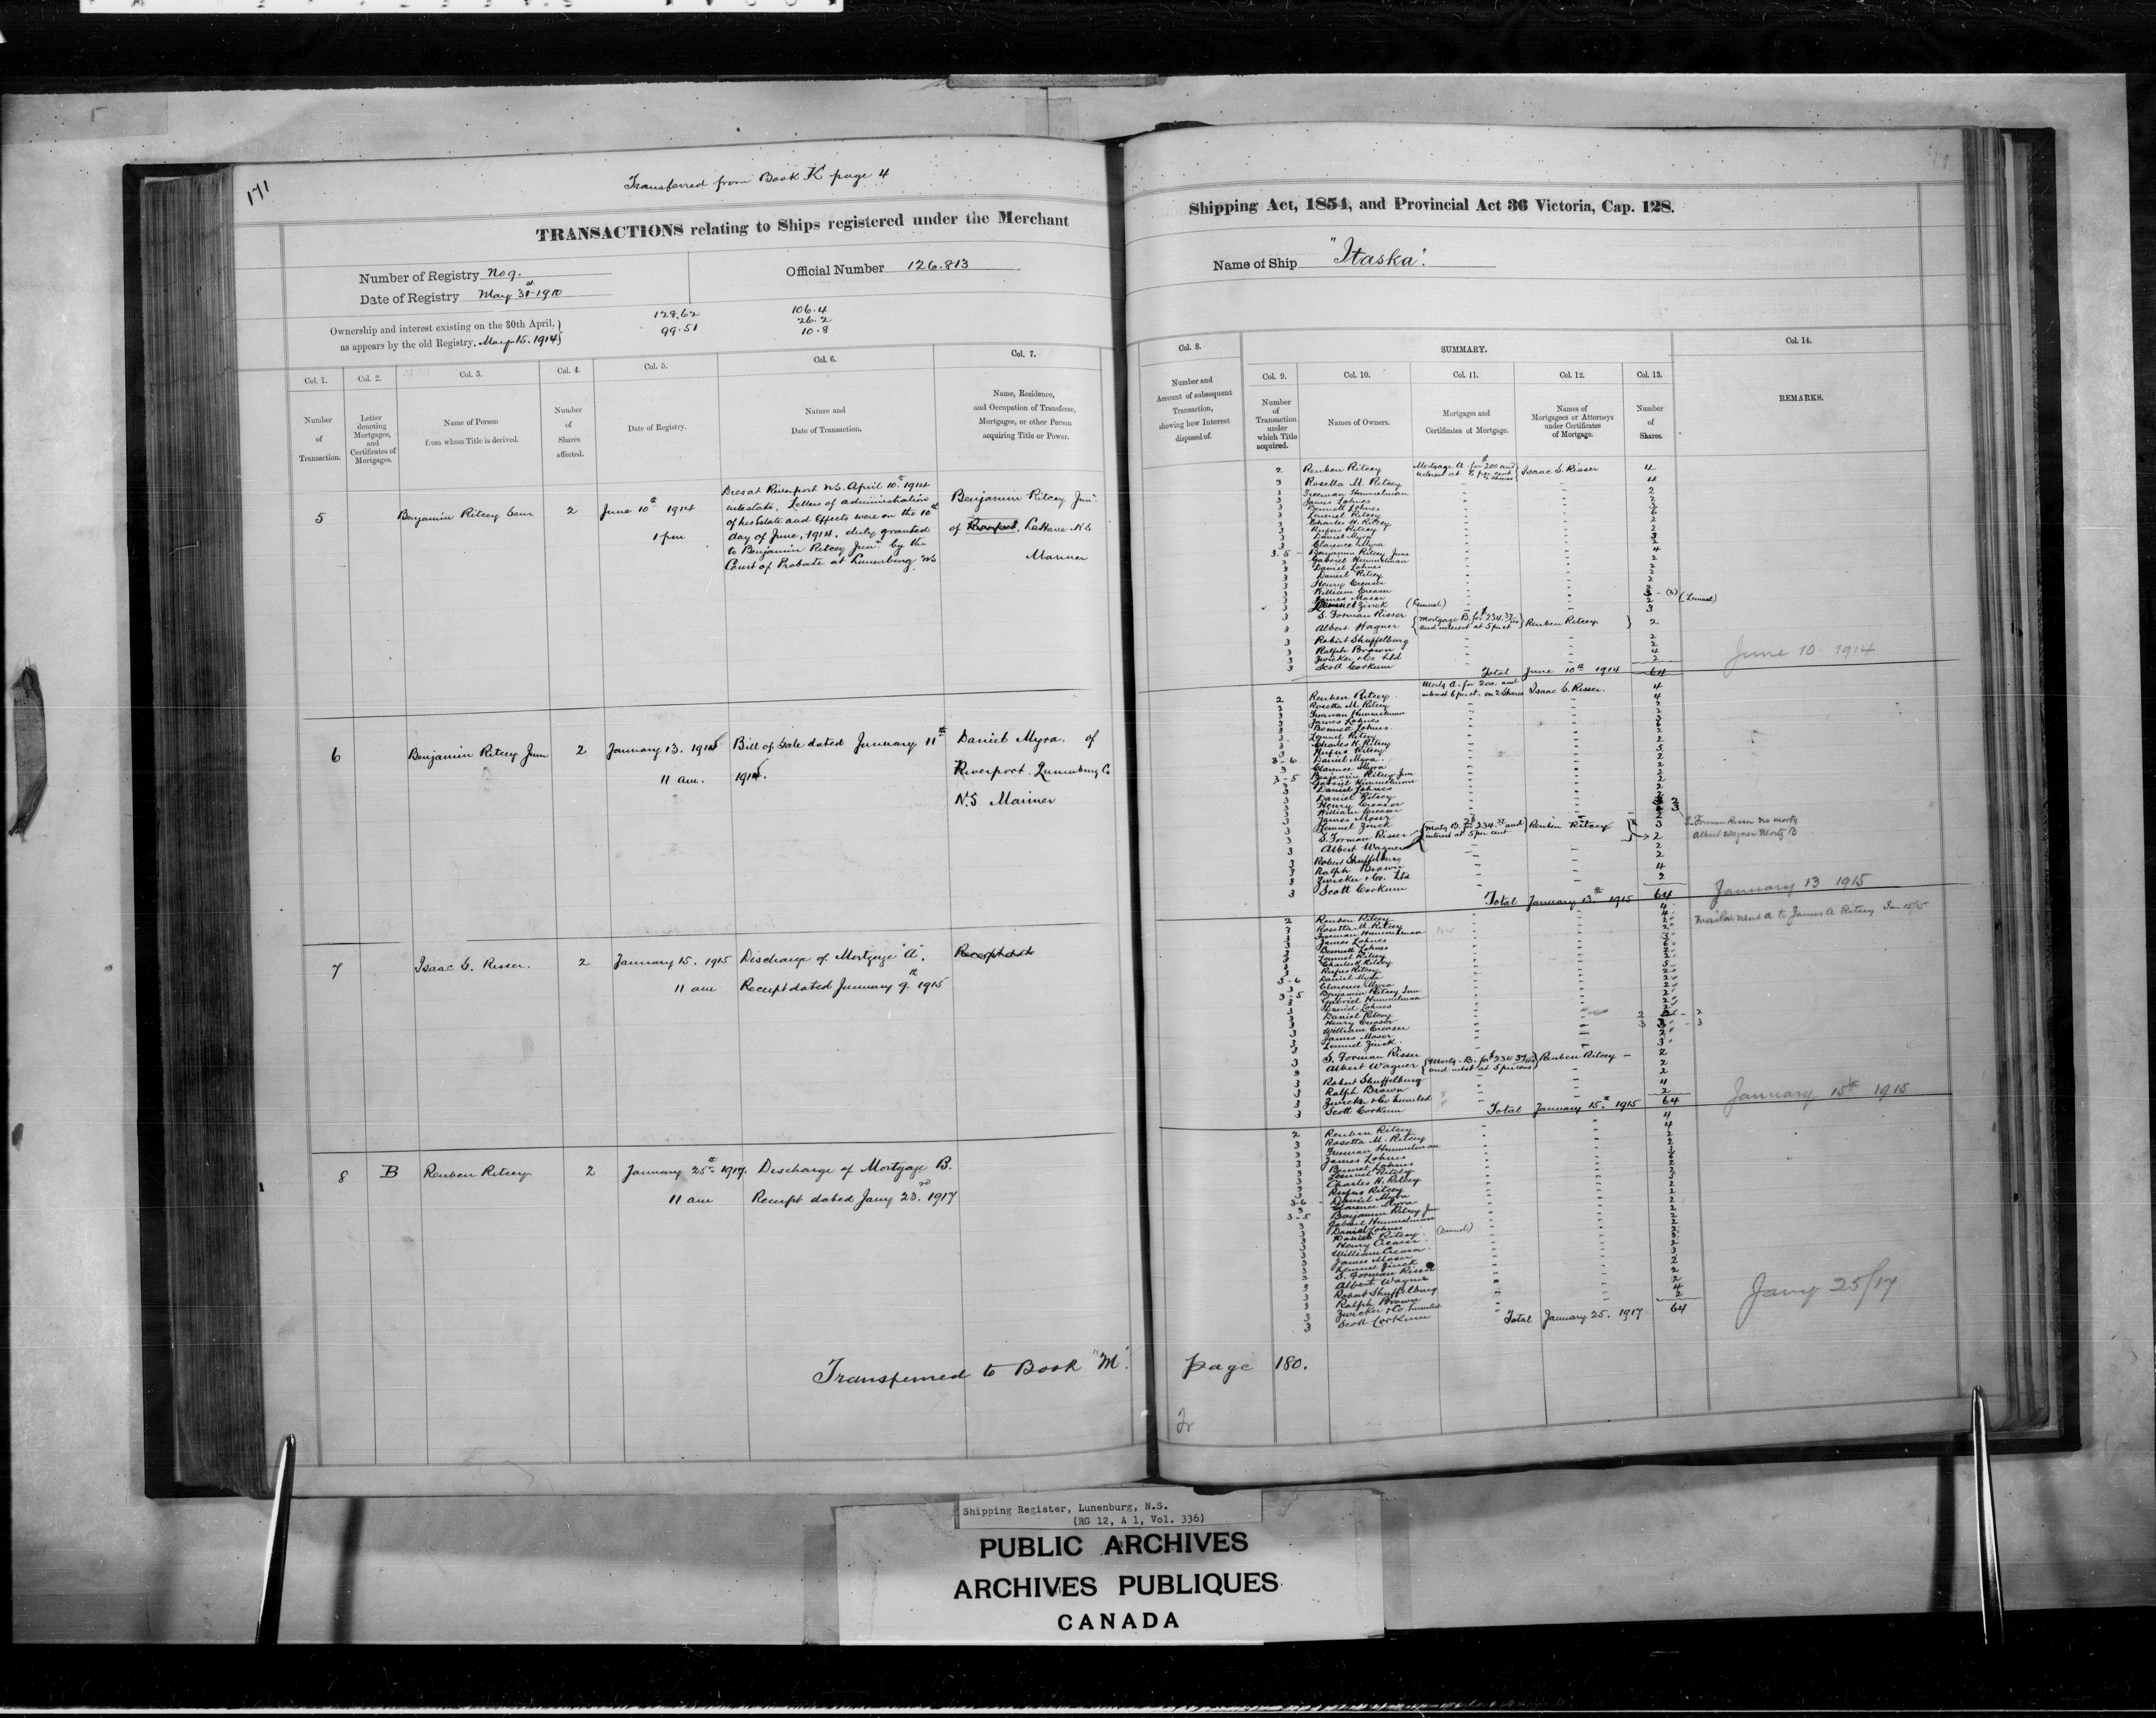 171
Transferred from Book K page 4
TRANSACTIONS relating to Ships registered under the Merchant
Number of Registry No 9.
Date of Registry May 31st 1910
Official Number 126.813
Ownership and interest existing on the 30th April,
as appears by the old Registry. May 15. 1914
128.62
99.51
106.4
26.2
10.8
Col. 1.
Col. 2.
Col. 3.
Col. 4.
Col. 5.
Col. 6.
Col. 7.
Number
of
Transaction.
Letter
denoting
Mortgages,
and
Certificates of
Mortgages.
Name of Person
from whom Title is derived.
Number
of
Shares
affected.
Date of Registry.
Nature and
Date of Transaction.
Name, Residence,
and Occupation of Transferee,
Mortgagee, or other Person
acquiring Title or Power.
5
Benjamin Ritcey Senr
2
June 10th 1914
1 pm
Dies at Riverport N.S. April 10th 1914
intestate, Letters of administration
of his Estate and Effects were on the 10th
day of June, 1914, duly granted
to Benjamin Ritcey Junr. by the
Court of Probate at Lunenburg NS
Benjamin Ritcey Junr.
of LaHave N.S
Mariner
6
Benjamin Ritcey Junr
2
January 13. 1915
11 am.
Bill of Sale dated January 11th
1915.
Daniel Myra. of
Riverport. Lunenburg Co
N.S Mariner
7
Isaac C. Risser.
2
January 15. 1915
11 am
Discharge of Mortgage "A".
Receipt dated January 9th. 1915
8
B
Reuben Ritcey
2
January 25th 1917.
11 am
Discharge of Mortgage B.
Receipt dated Jany 23rd. 1917
Transferred to Book "M".
Shipping Act, 1854, and Provincial Act 36 Victoria, Cap. 128.
Name of Ship "Itaska".
Col. 8.
SUMMARY.
Col. 14.
Col. 9.
Col. 10.
Col. 11.
Col. 12.
Col. 13.
Number and
Account of subsequent
Transaction,
showing how Interest
disposed of.
Number
of
Transaction
under
which Title
acquired.
Names of Owners.
Mortgages and
Certificates of Mortgage.
Names of
Mortgagees or Attorneys
under Certificates
of Mortgage.
Number
of
Shares.
REMARKS.
2 Reuben Ritcey Mortgage A. for $200 and interest at 6 per cent Isaac C Risser 4
3 Rosetta M. Ritcey 4
3 Freeman Himmelman 2
3 James Lohnes
3 Bennett Lohnes
3 Lemuel Ritcey
3 Charles H. Ritcey
3 Rufus Ritcey
3 Daniel Myra
3 Clarence Myra
3.5 Benjamin Ritcey Junr
3 Gabriel Himmelman
3 Daniel Lohnes
3 Daniel Ritcey
3 Henry Creaser
3 William Creaser
3 James Moser
3 Lemuel Zinck (Lemuel) (Lemuel)
3 S. Forman Risser
3 Albert Wagner Mortgage B. for $234.37/100 and interest at 5 pr ct Reuben Ritcey 2
3 Robert Shuffelburg 2
3 Ralph Brown 2
3 Zwicker & Co Ltd 4
3 Scott Corkum 2
Total June 10th 1914 64
June 10. 1914
2 Reuben Ritcey Mortg A. for 200. and interest 6 pr ct. on 2 Shares Isaac C. Risser. 4
3 Rosetta M. Ritcey 4
3 Freeman Himmelman
3 James Lohnes
3 Bennett Lohnes
3 Lemuel Ritcey
3 Charles H. Ritcey
3 Rufus Ritcey
3-6 Daniel Myra
3 Clarence Myra
3-5 Benjamin Ritcey Junr
3 Gabriel Himmelman
3 Daniel Lohnes
3 Daniel Ritcey
3 Henry Creaser
3 William Creaser
3 James Moser
3 Lemuel Zinck
3 S. Forman Risser Mortg B. for 234.37 and interest at 5 per cent Reuben Ritcey
3 Albert Wagner 2
S. Forman Risser no mortg
Albert Wagner Mortg B
3 Robert Shuffelburg 2
3 Ralph Brown 2
3 Zwicker & Co. Ltd 4
3 Scott Corkum 2
Total January 13th 1915 64
January 13 1915
2 Reuben Ritcey 4
3 Rosetta M. Ritcey 4
to James A Ritcey Jan 15/15
3 Freeman Himmelman
3 James Lohnes
3 Bennett Lohnes
3 Lemuel Ritcey
3 Charles H. Ritcey
3 Rufus Ritcey
3-6 Daniel Myra
3 Clarence Myra
3-5 Benjamin Ritcey Junr
3 Gabriel Himmelman
3 Daniel Lohnes
3 Daniel Ritcey
3 Henry Creaser
3 William Creaser
3 James Moser
3 Lemuel Zinck.
3 S. Forman Risser
3 Albert Wagner Mortg. B. for $234.37/100 and intst at 5 per cent Reuben Ritcey 2
3 Robert Shuffelburg 2
3 Ralph Brown 2
3 Zwicker & Co Limited 4
3 Scott Corkum 2
Total January 15th. 1915 64
January 15th 1915
2 Reuben Ritcey 4
3 Rosetta M. Ritcey 4
3 Freeman Himmelman
3 James Lohnes
3 Bennet Lohnes
3 Lemuel Ritcey
3 Charles H. Ritcey
3 Rufus Ritcey
3-6 Daniel Myra
3 Clarence Myra
3-5 Benjamin Ritcey Junr
3 Gabriel Himmelman
3 Daniel Lohnes
3 Daniel Ritcey (Daniel)
3 Henry Creaser
3 William Creaser
3 James Moser
3 Lemuel Zinck
3 S. Forman Risser
3 Albert Wagner 2
3 Robert Shuffelburg 2
3 Ralph Brown 2
3 Zwicker & Co. Limited 4
3 Scott Corkum 2
Total January 25. 1917 64
Jany 25/17
page 180.
Shipping Register, Lunenburg, N.S.
(RG 12, A 1, Vol. 336)
PUBLIC ARCHIVES
ARCHIVES PUBLIQUES
CANADA